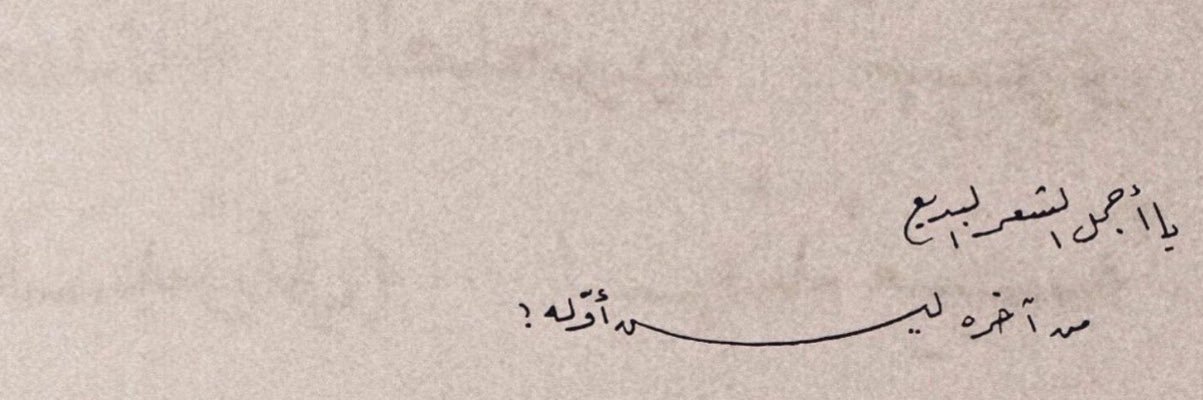 يا أجمل الشعر البديع
من آخره ليـــــــن أوّله ؟